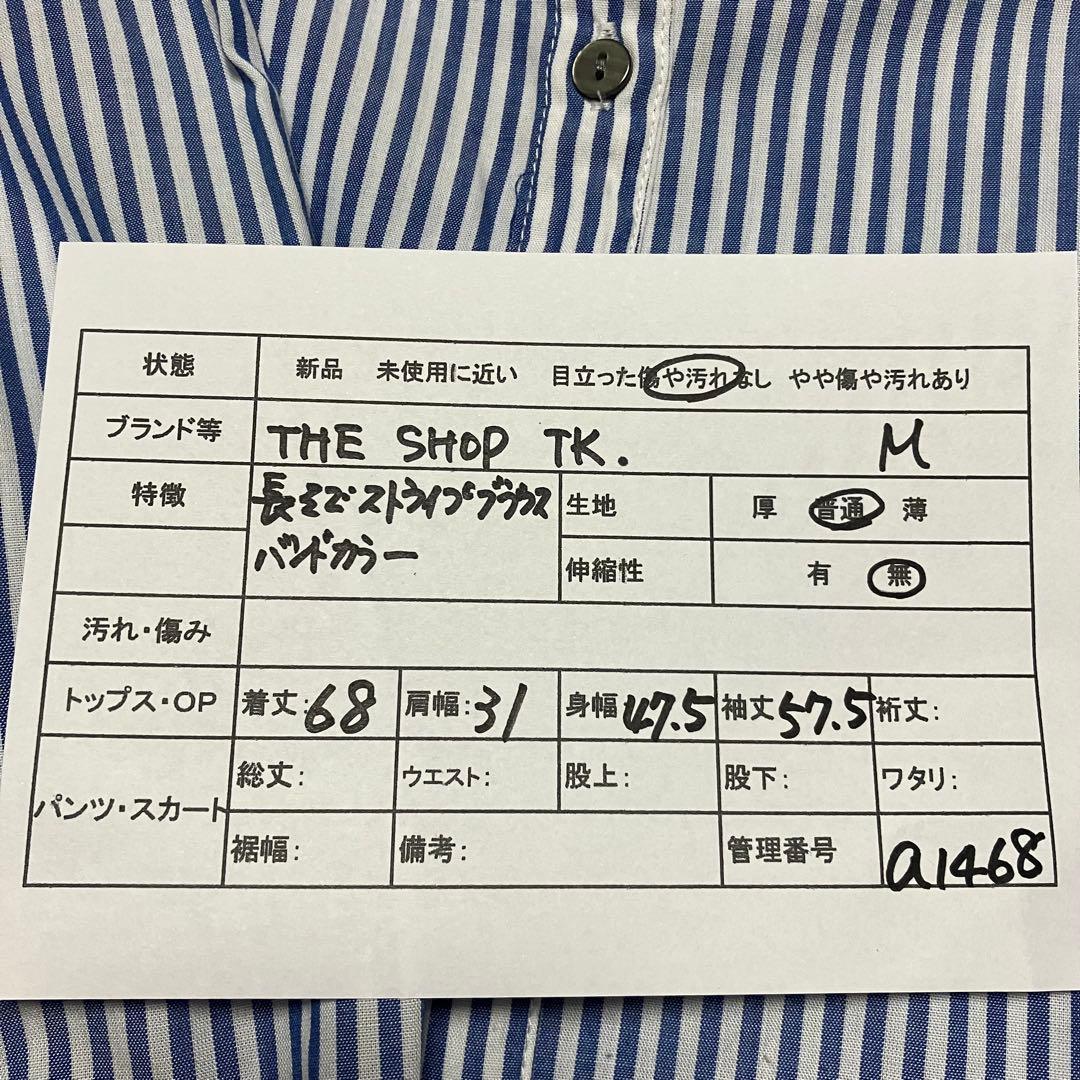 状態 新品 未使用に近い 目立った傷や汚れなし やや傷や汚れあり
ブランド等 THE SHOP TK. M
特徴 長そでストライプブラウス 生地 厚 普通 薄
バンドカラー 伸縮性 有 無
汚れ・傷み
トップス・OP 着丈:68 肩幅:31 身幅 47.5 袖丈 57.5 裄丈:
パンツ・スカート 総丈: ウエスト: 股上: 股下: ワタリ:
裾幅: 備考: 管理番号 a1468